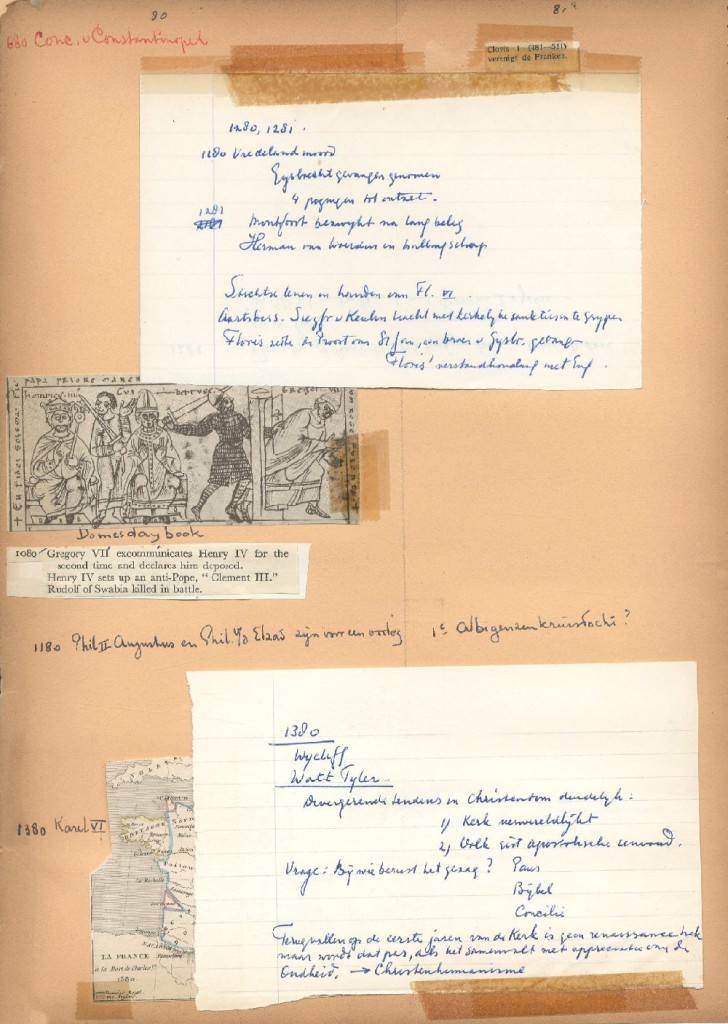 80
81
680 Conc. v Constantinopel
Clovis I (481—511)
verenigt de Franken.
1280, 1281.
1280 Vredeland moord
Gysbrecht gevangen genomen
4 pogingen tot ontzet.
1281
Montfoort bezwykt na lang beleg
Herman van Woerden in ballingschap
Stichtse lenen in handen van Fl. VI
Aartsbiss. Segfr v Keulen tracht met kerkelyke sankties in te grypen
Floris zette de Proost van St Jan, een broer v Gysbr. gevangen
Floris' verstandhouding met Eng.
PAPA
Domesday book
1080 Gregory VII excommunicates Henry IV for the
second time and declares him deposed.
Henry IV sets up an anti-Pope, "Clement III."
Rudolf of Swabia killed in battle.
1180 Phil II Augustus en Phil. v/d Elzas zijn voor een oorlog
1e Albigenzenkruistocht?
1380
Wycliff
Watt Tyler
Divergerende tendens in Christendom duidelyk:
1) Kerk verwereldlykt
2) Volk eist apostolische eenvoud.
Vrage: By wie berust het gezag? Paus
Bybel
Concilie
Terugvallen op de eerste jaren van de Kerk is geen renaissance trek
maar wordt dat pas, als het samenvalt met appreciatie van de
Oudheid. → Christenhumanisme
1380 Karel VI
BRETAGNE
La Rochelle
NAVARRE
LA FRANCE
à la Mort de Charles V
1380